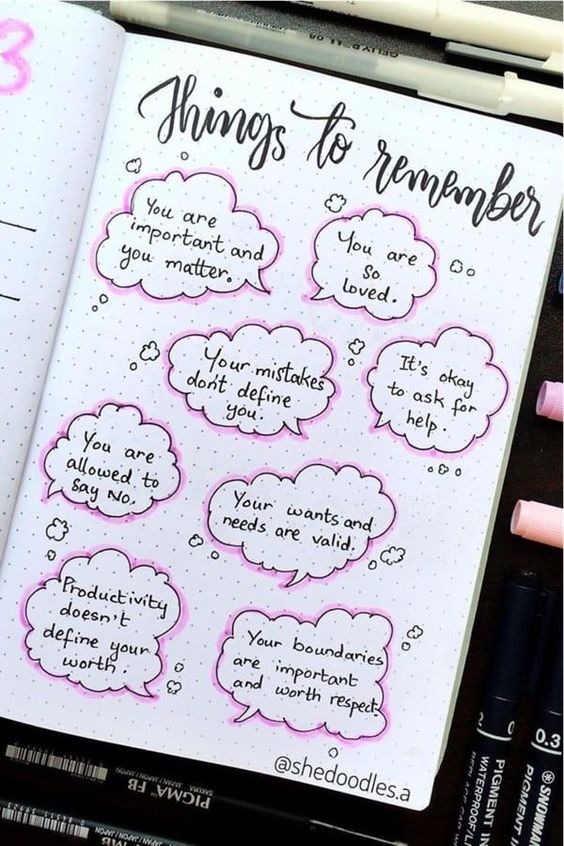 3
Things to remember
You are
important and
you matter.
You are
so
loved.
Your mistakes
don't define
you.
It's okay
to ask for
help.
You are
allowed to
Say No.
Your wants and
needs are valid.
Productivity
doesn't
define your
worth.
Your boundaries
are important
and worth respect.
@shedoodles.a
PIGMA FB
SAKURA
JAPAN
PIGMENT IN
WATERPROOF/L
0.3
SNOWMAN
PIGMENT